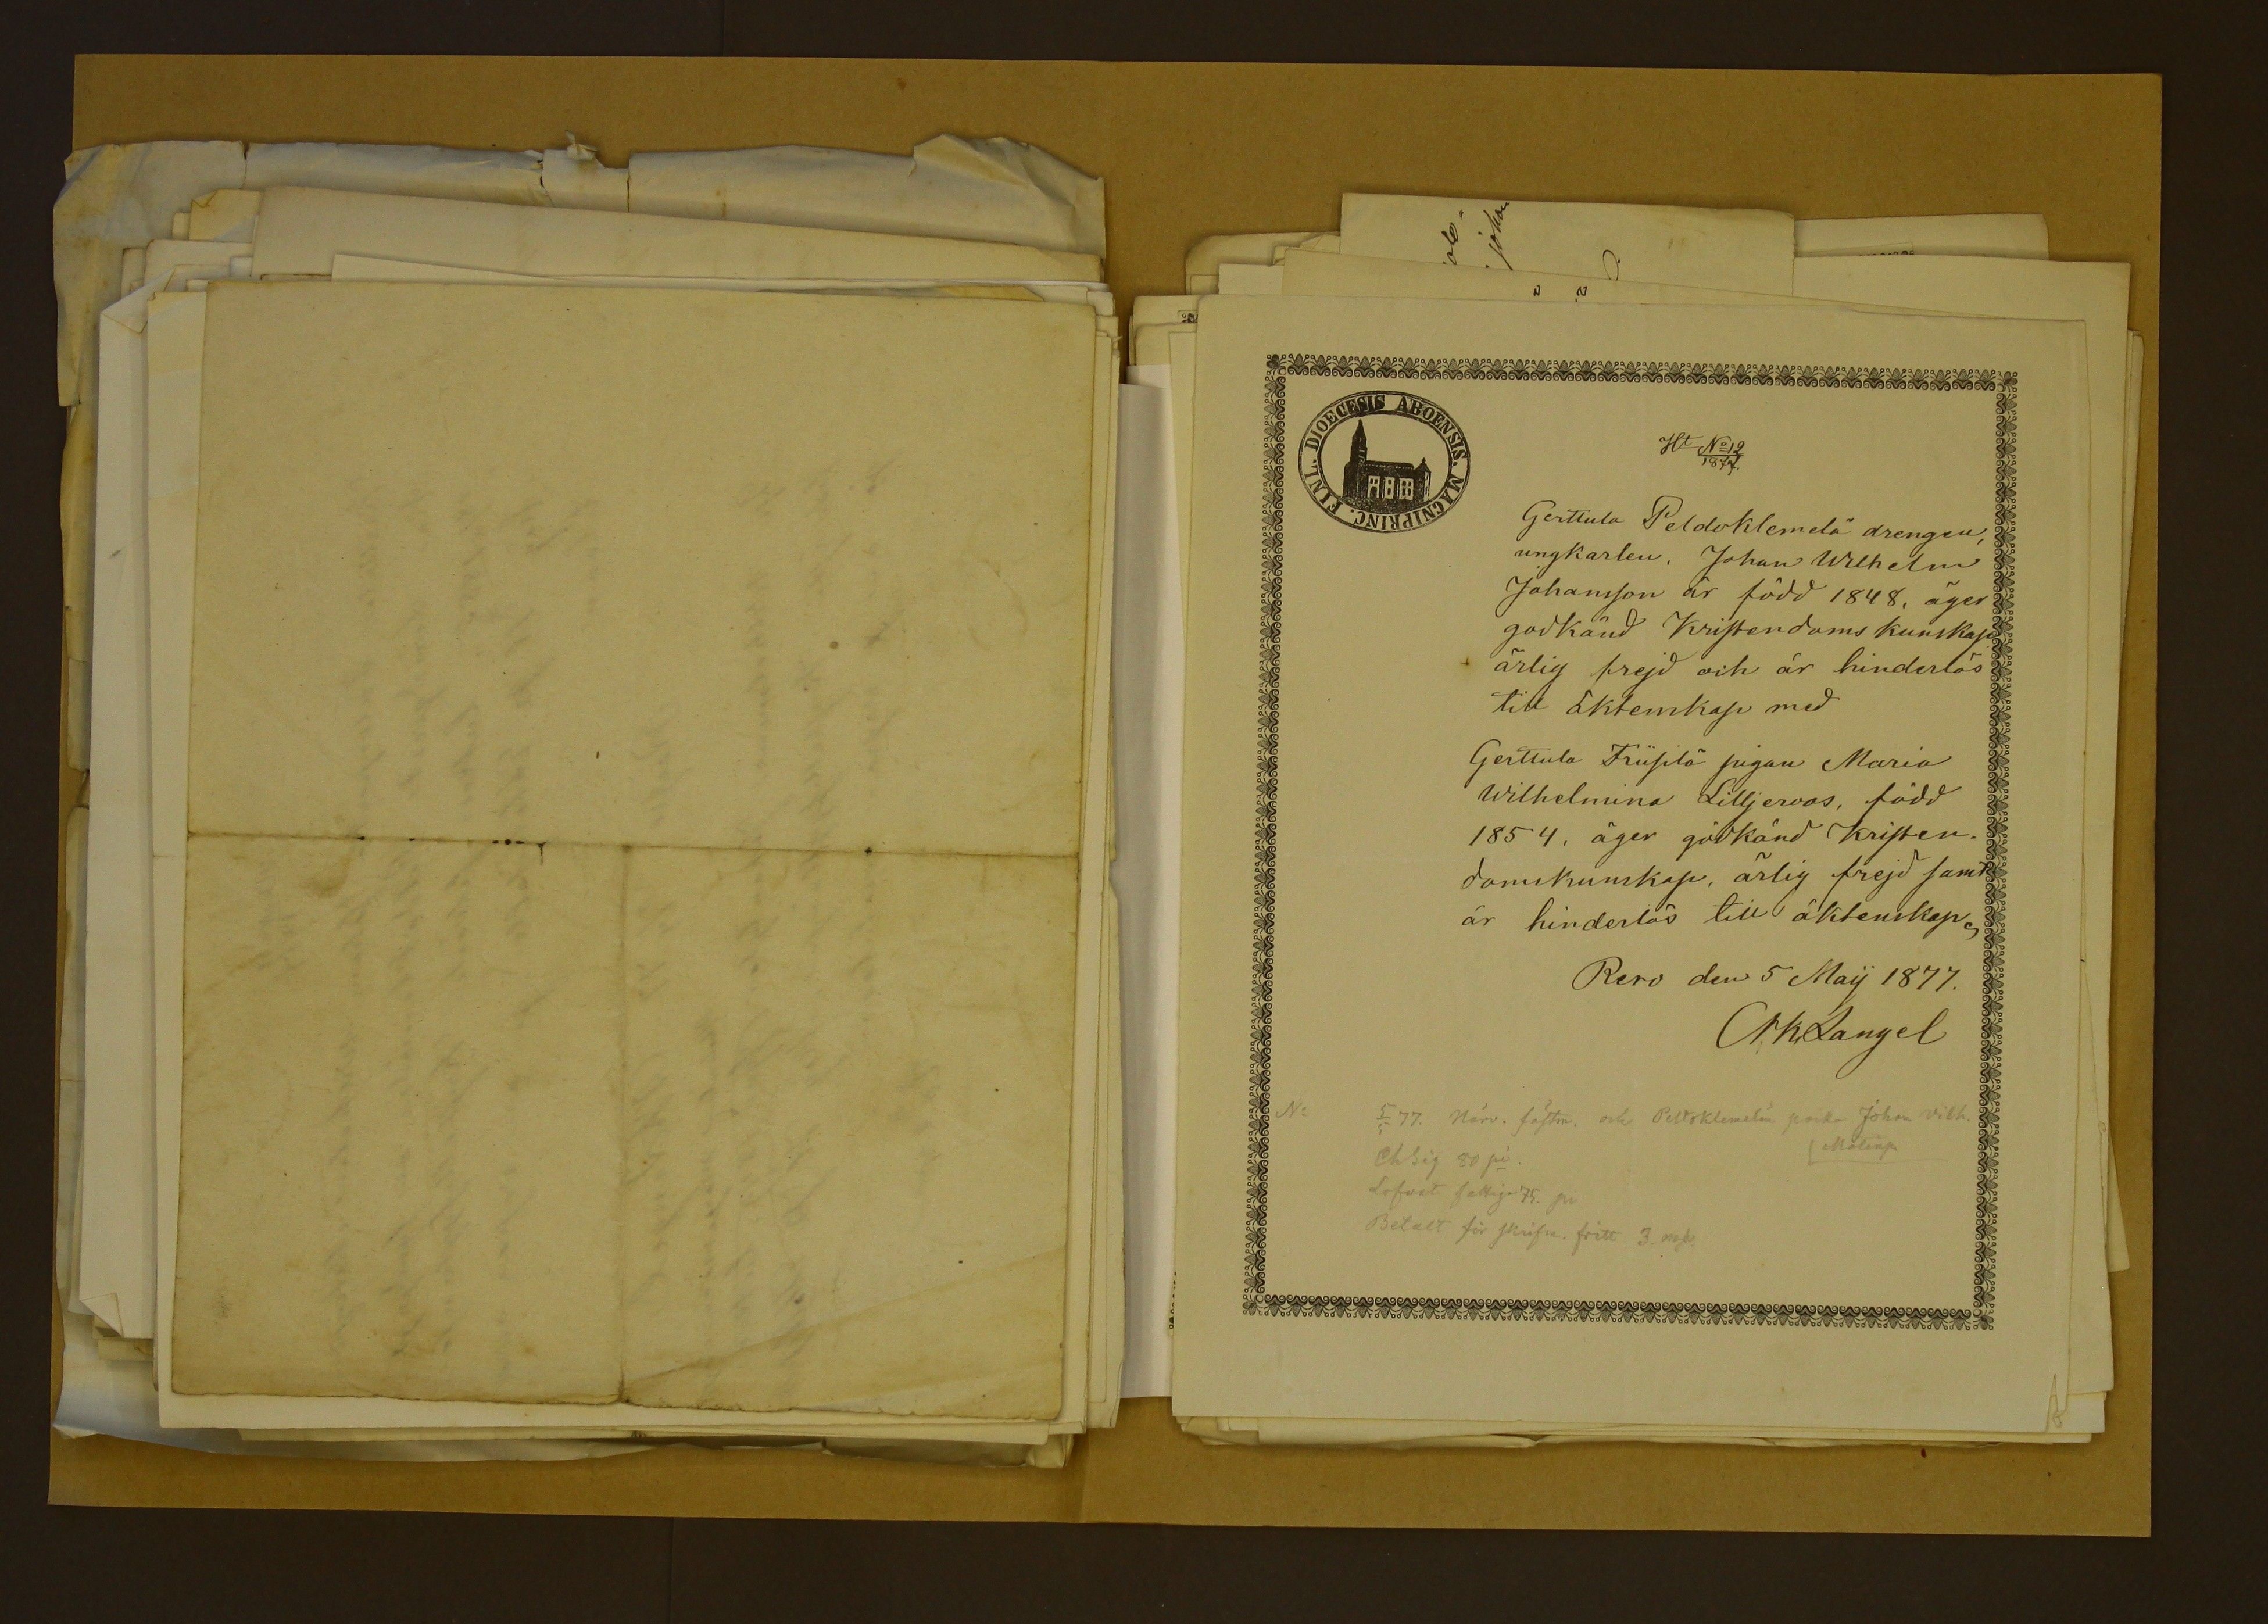 DIOECESIS ABOENSIS. MAGNIPRINC. FINL.
Ht No 12
1877
Gerttula Peldoklemelä drengen,
ungkarlen, Johan Wilhelm
Johansson är född 1848, äger
godkänd Kristendoms kunskap
ärlig frejd och är hinderlös
till äktenskap med
Gerttula pigan Maria
Wilhelmina Liljeroos, född
1854, äger godkänd Kristen-
domskunskap, ärlig frejd samt
är hinderlös till äktenskap,
Reso den 5 Maij 1877.
Langel
No
5/5 77. Närv. fästm. och Peltoklemelän Johan Vilh.
80 pi.
75. pi
Betalt för skrifn. fritt 3 mk